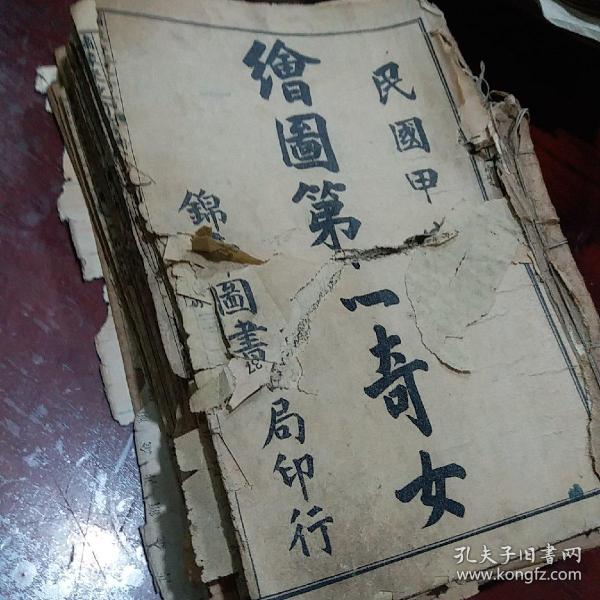 民國甲
繪圖第一奇女
錦 圖書局印行
孔夫子旧书网
www.kongfz.com